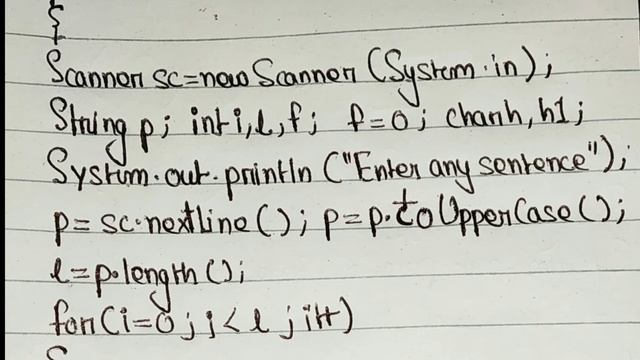 {
Scanner sc=new Scanner (System.in);
String p; int i,l,f; f=0; char h, h1;
System.out.println ("Enter any sentence");
p= sc.nextLine(); p=p.toUpperCase();
l=p.length();
for(i=0;i<l;i++)
{